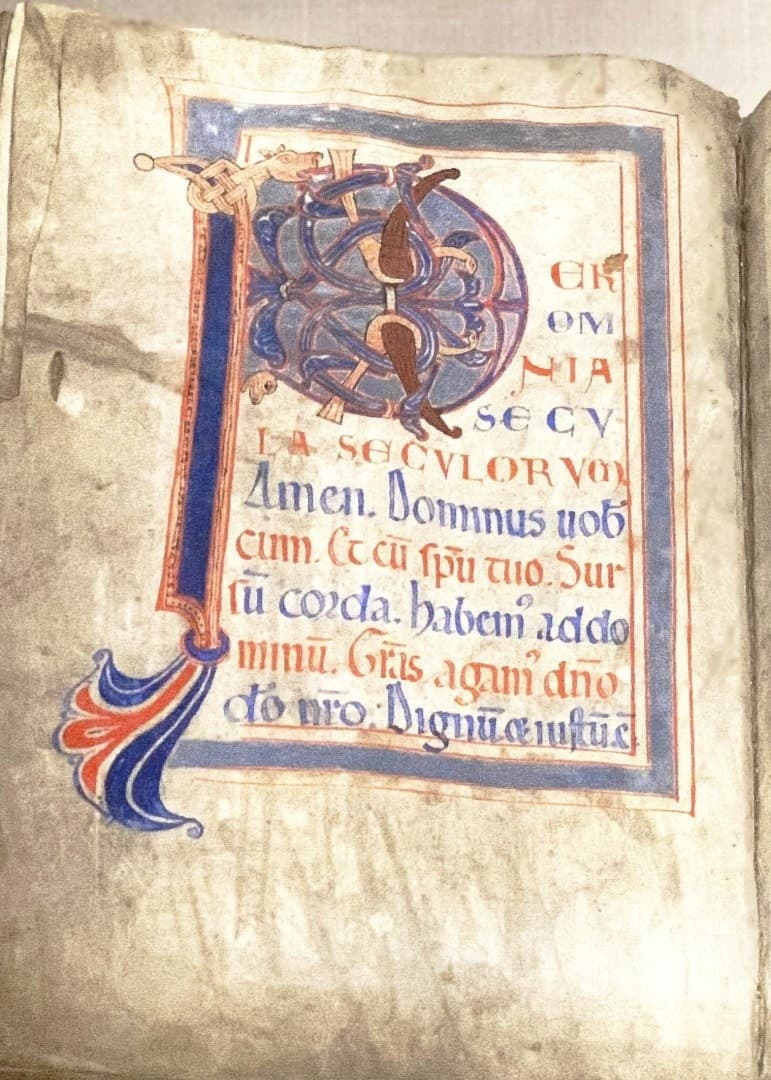 PER
OM
NIA
SECV
LA SECVLORVM
Amen. Dominus uob̄
cum. Et cū sp̄u tuo. Sur
sū corda. habemꝰ ad do
minū. Gr̄as agamꝰ dn̄o
dō nr̄o. Dignū & iustū ē.